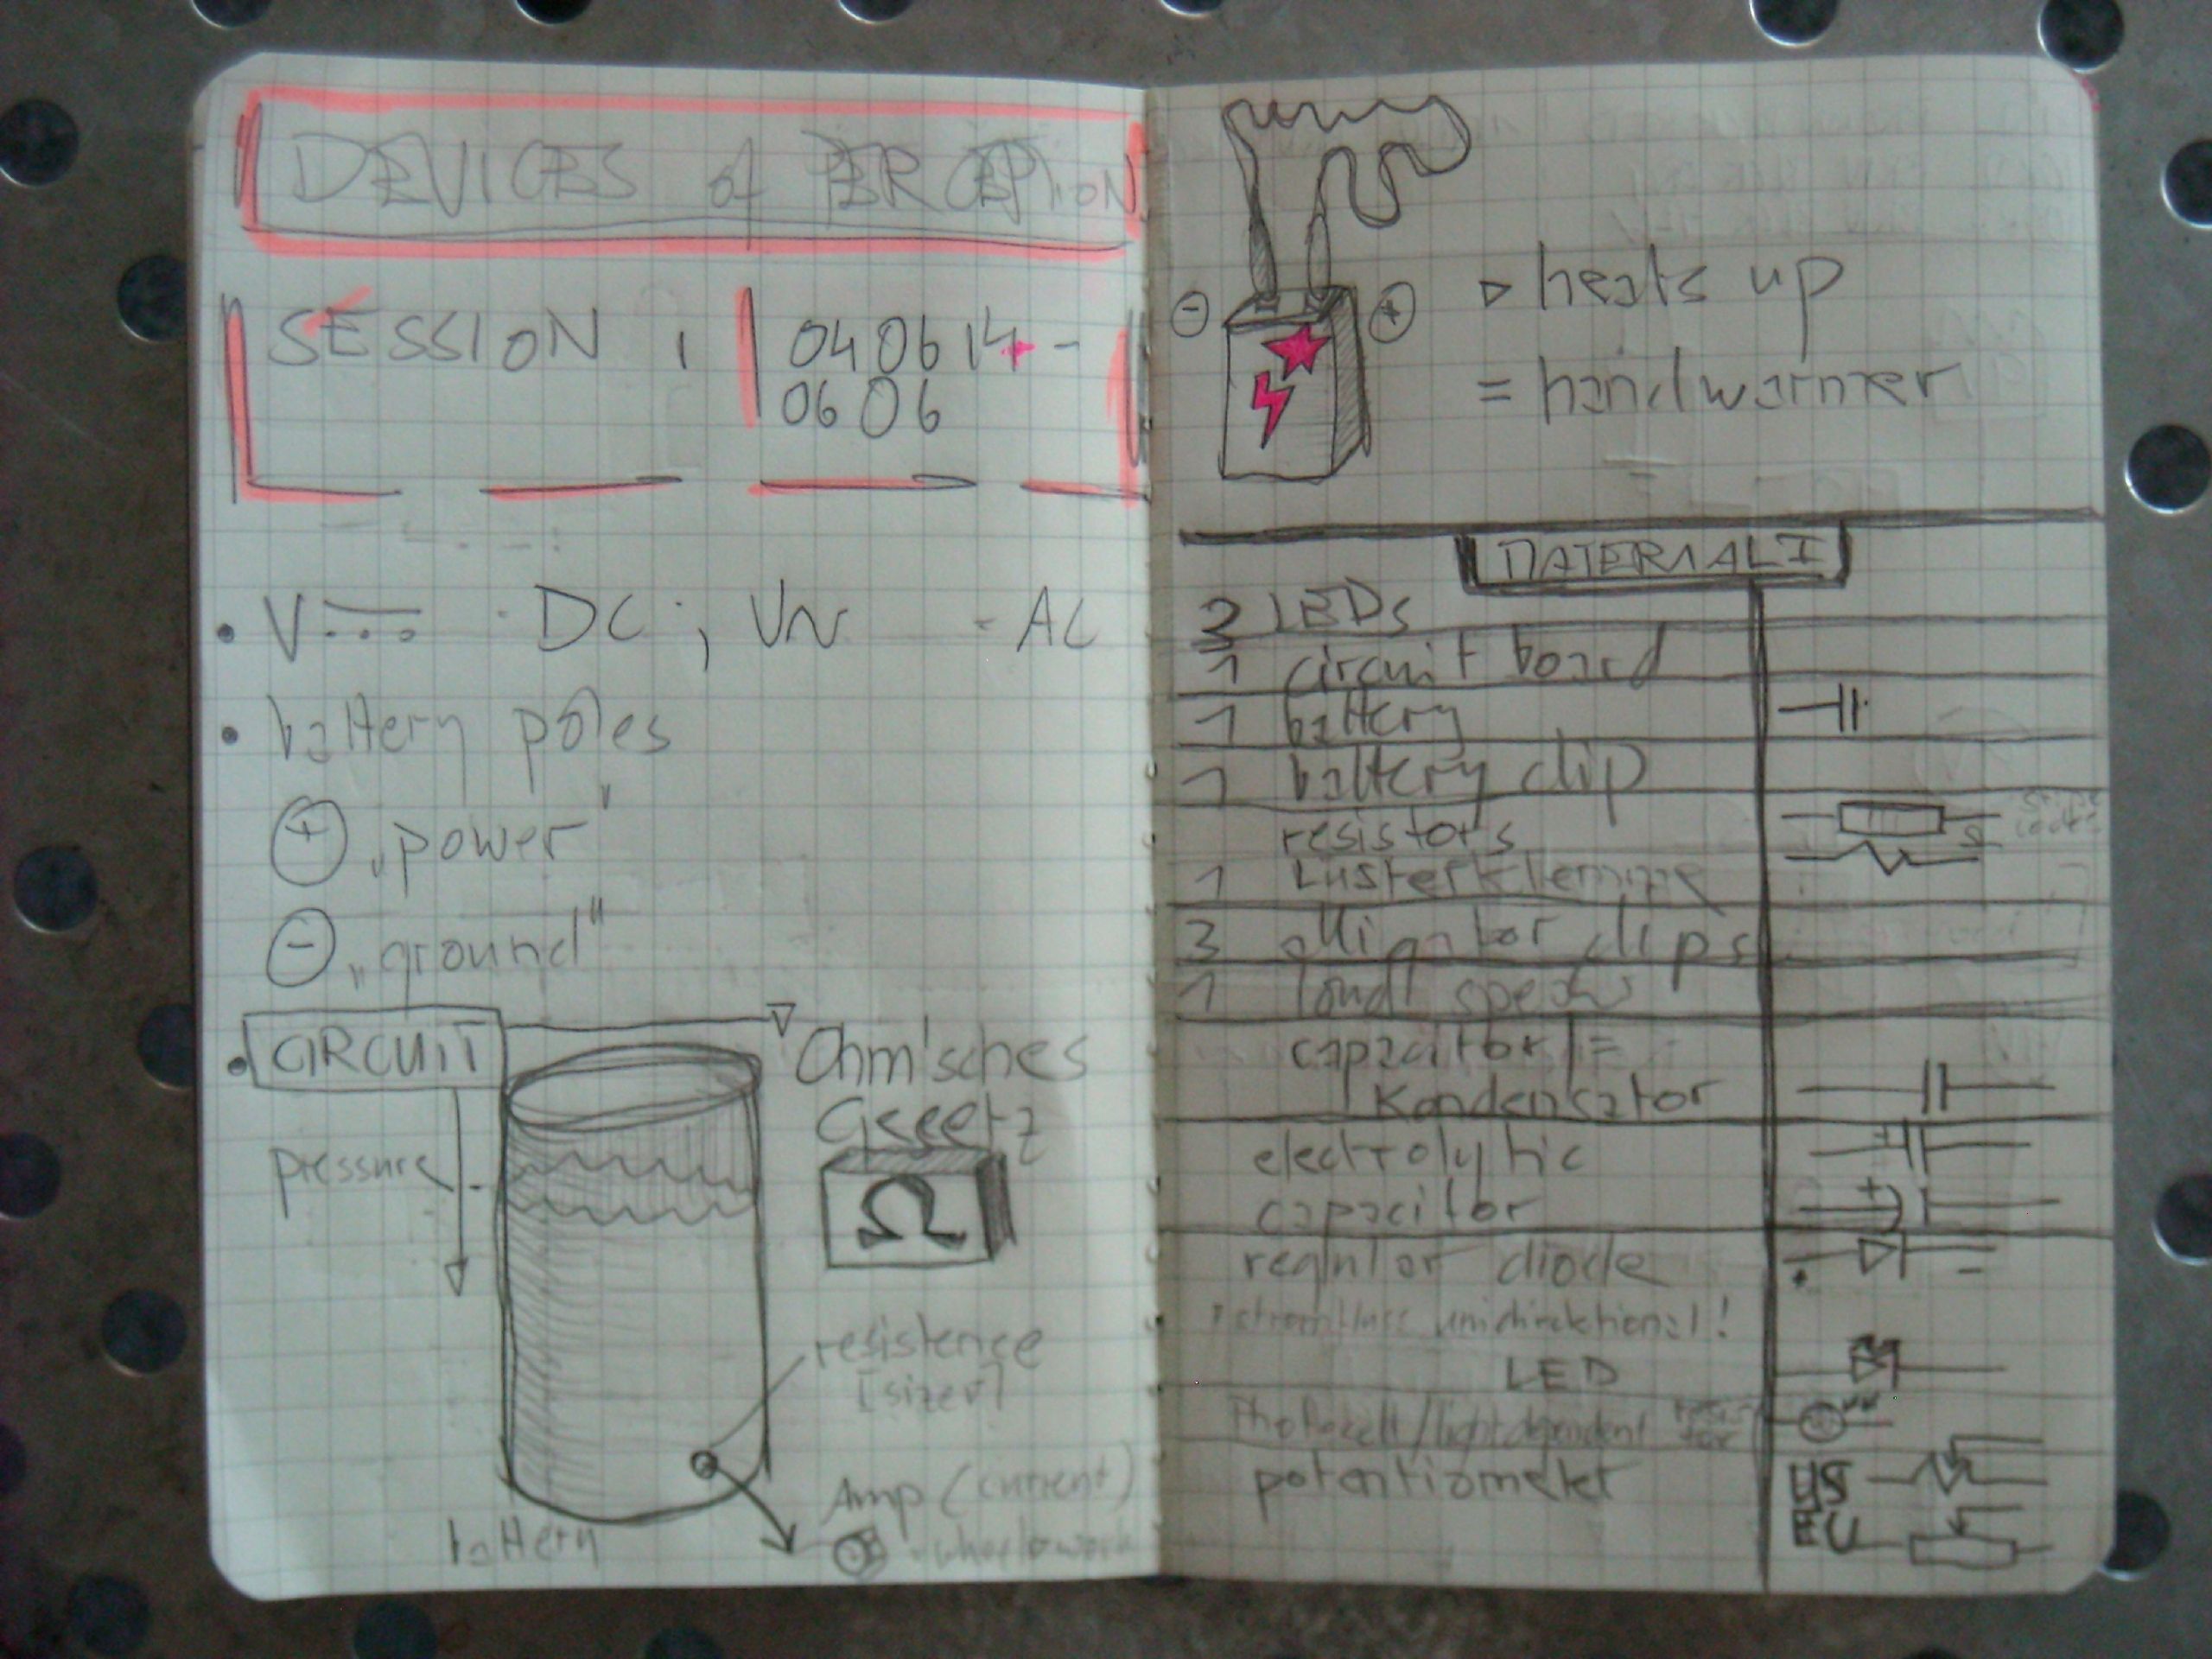 DEVICES of PERCEPTION
SESSION 1 040614 -
0606
• V DC ; V~ - AC
• battery poles
+ „power"
- „ground"
• CIRCUIT
Ohm'sches
Gseetz
pressure
Ω
resistence
[sizer]
Amp (current)
battery
- +
▷ heats up
= handwarmer
MATERIAL I
LEDs
1 circuit board
1 battery
1 battery clip
resistors
1 Lusterklemme
3 alligator clips
1 loud speak
capacitor =
Kondensator
electrolytic +
capacitor +
regulor diode + -
stromfluss unidirektional!
LED
Photocell/lightdependent resistor
potentiometer US
EU